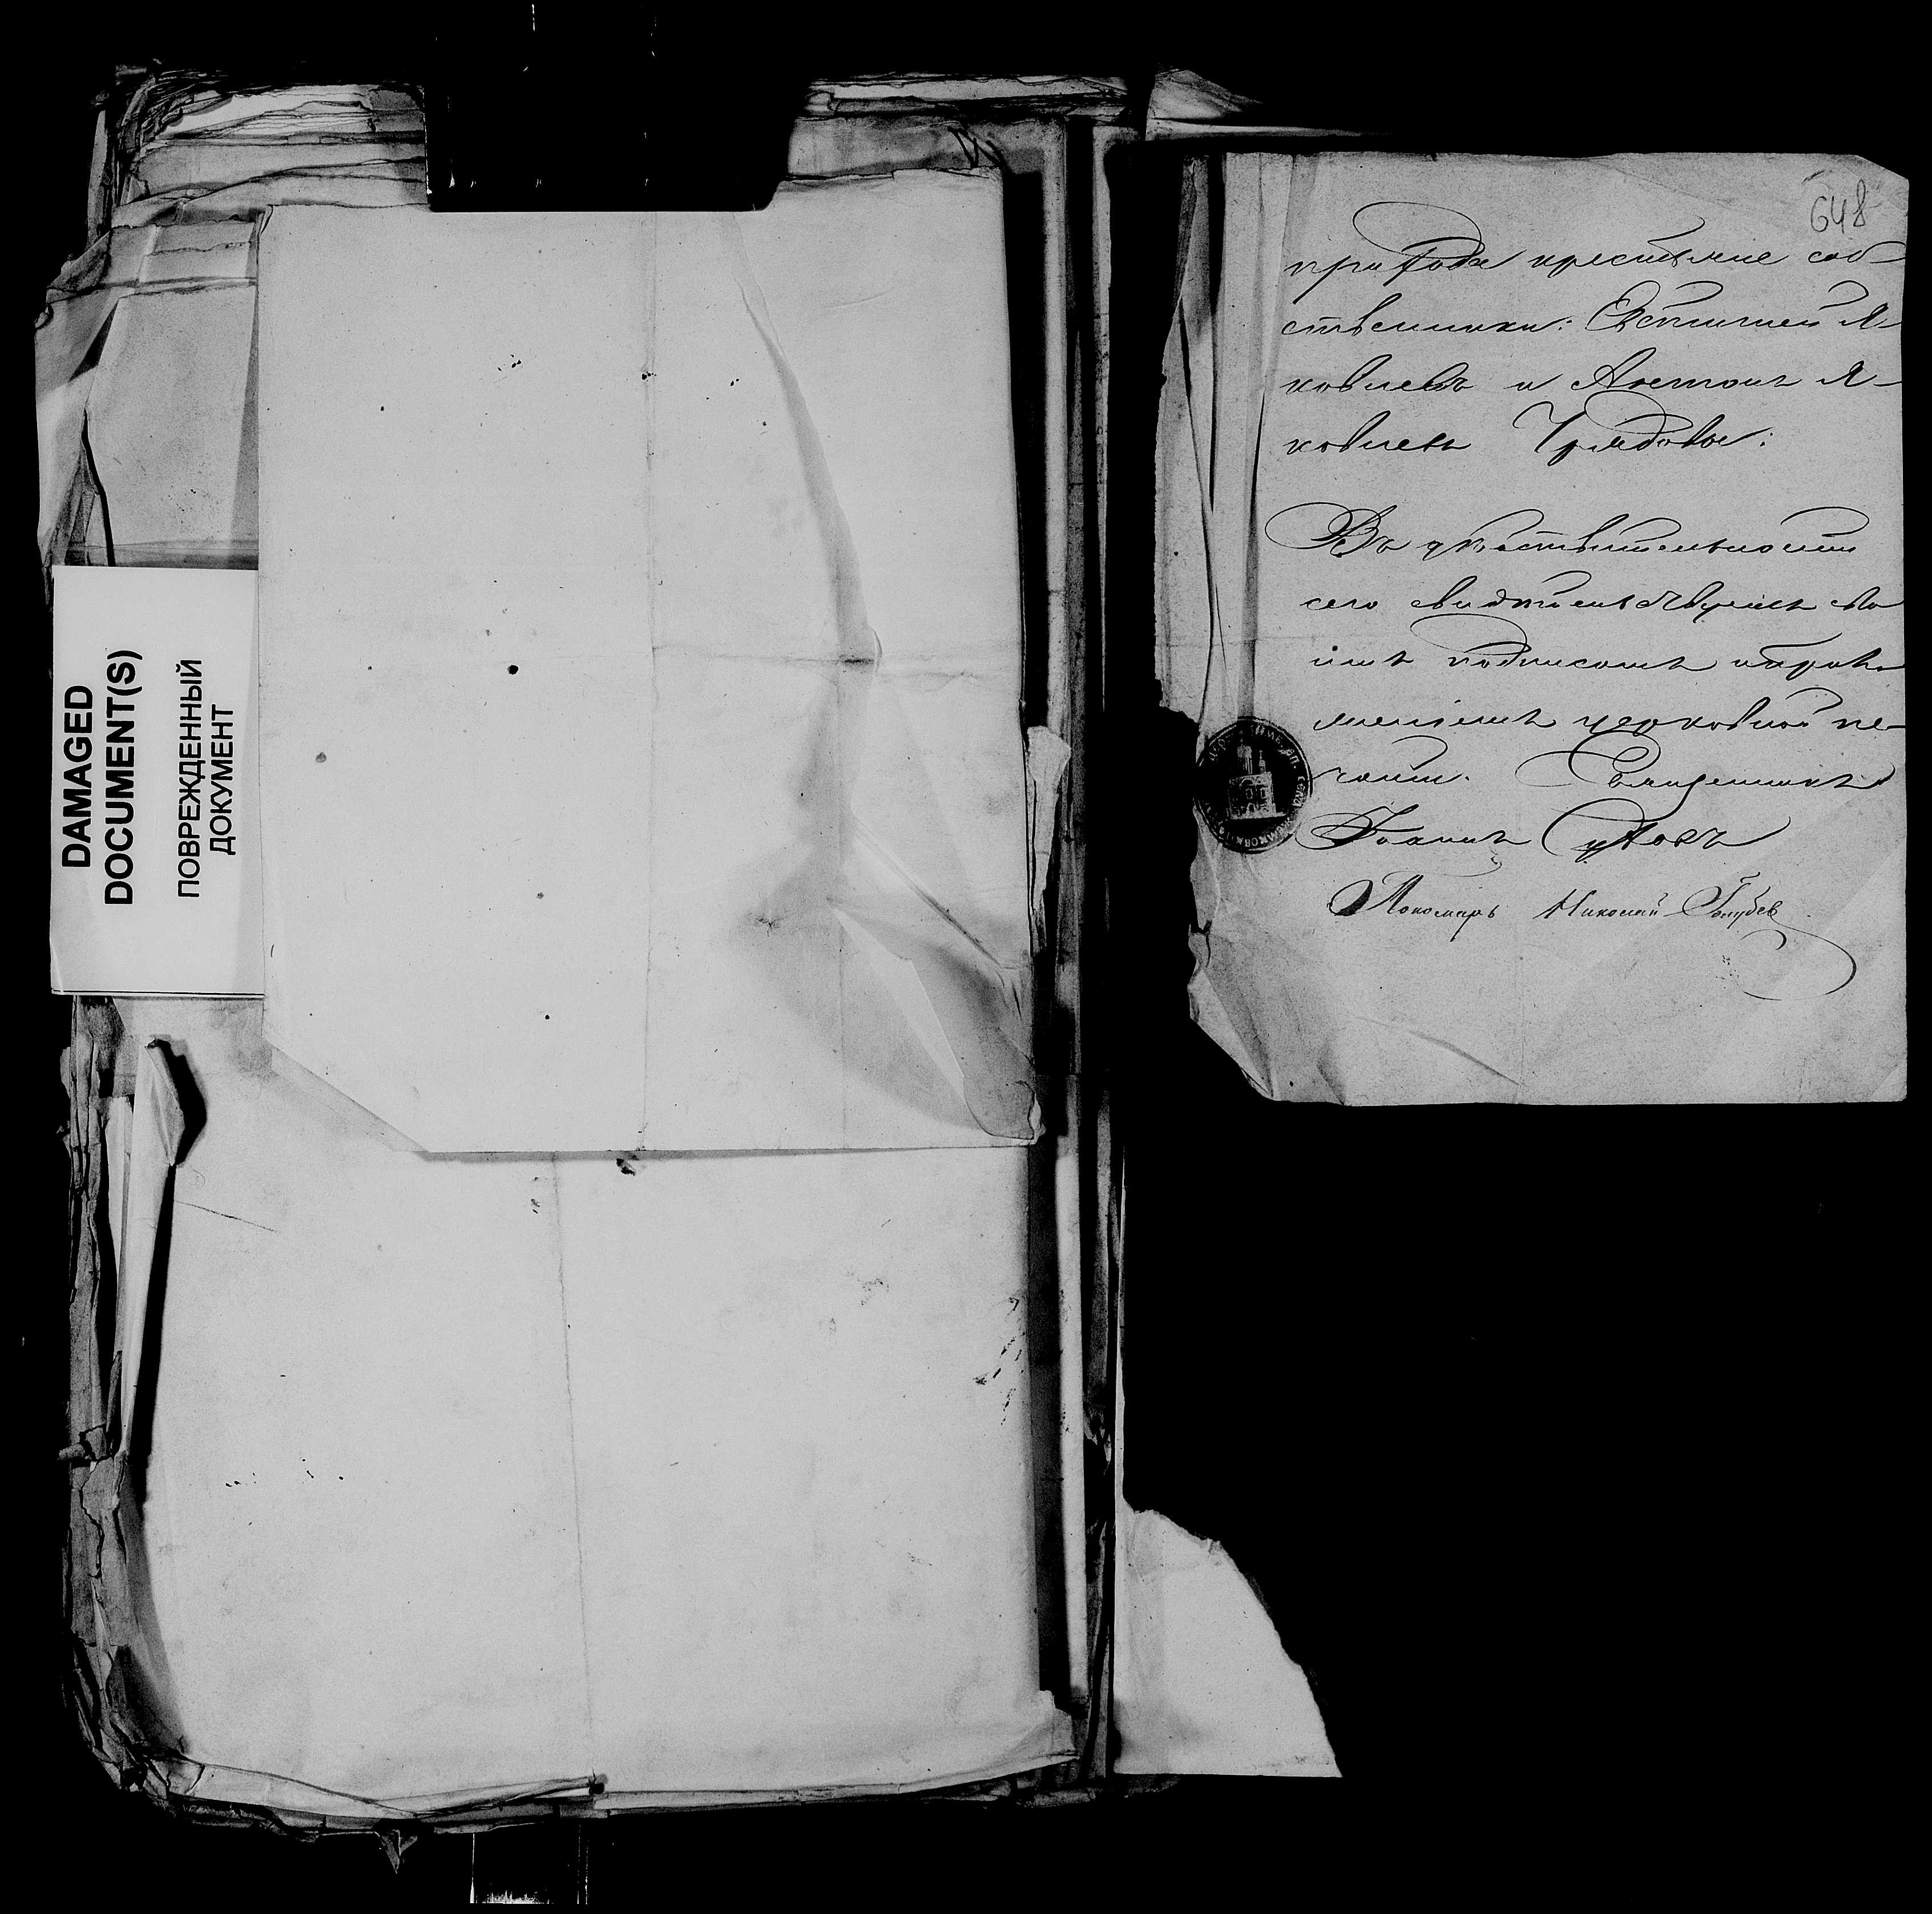 DAMAGED
DOCUMENT(S)
ПОВРЕЖДЕННЫЙ
ДОКУМЕНТ
648
прихода крестьяне соб-
ственники: Евстигней Я-
ковлевъ и Антонъ Я-
ковлевъ
Въ действительности
сего свидетельствуемъ сво
имъ подписомъ и прило-
жениемъ церковной пе-
чати. Священникъ
Иоаннъ
Пономарь Николай Голубев